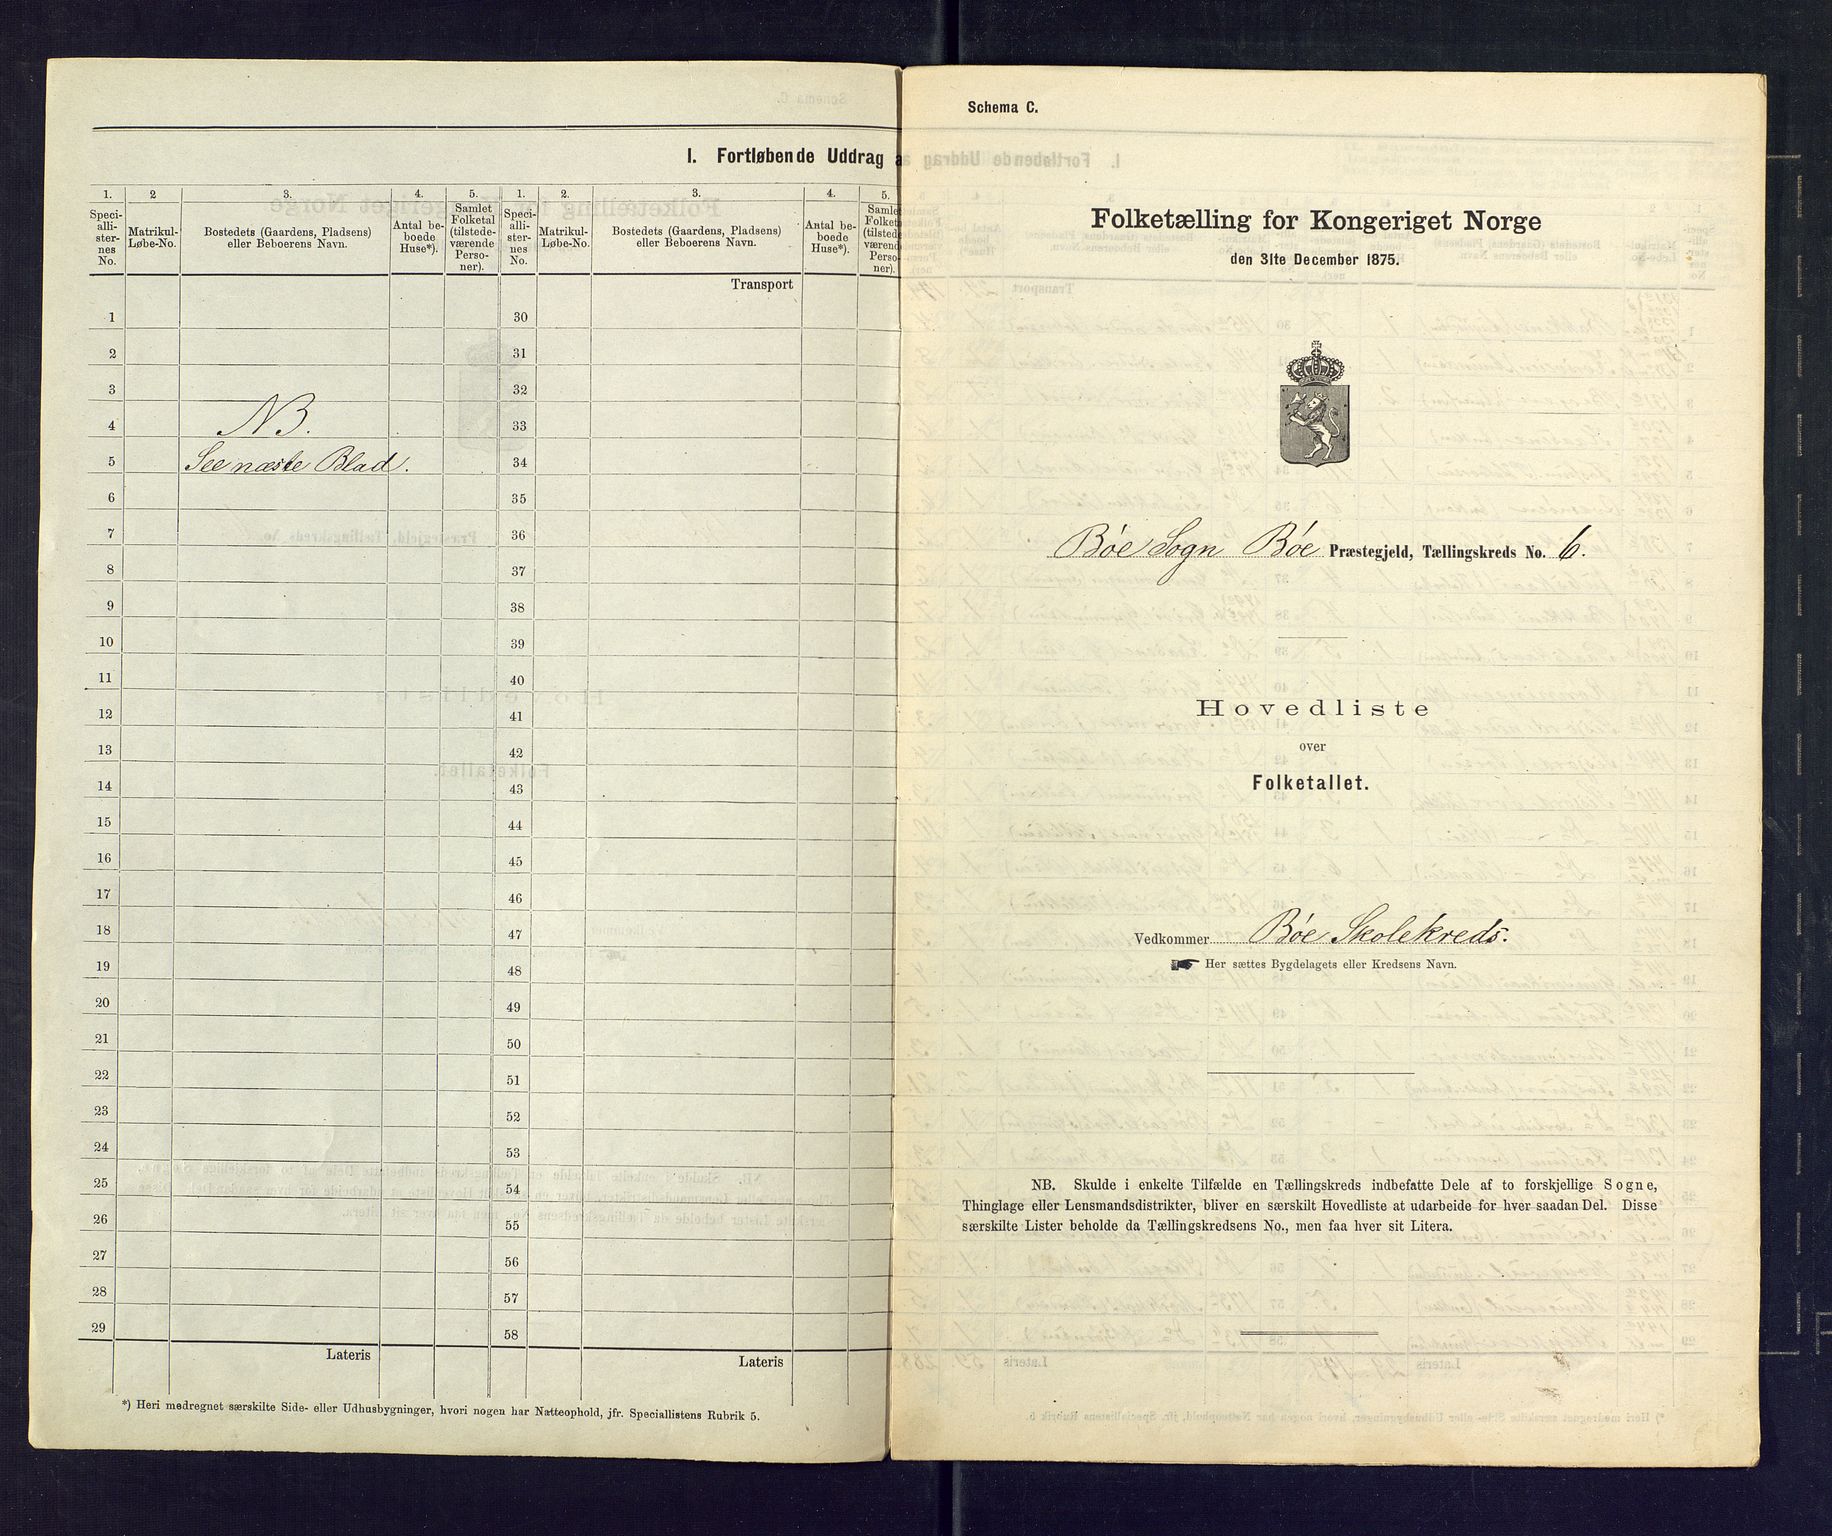 I. Fortløbende Uddrag a
1. 2 3. 4. 5. 1. 2. 3. 4. 5.
Speci-alli-ster-nes No. Matrikul-Løbe-No. Bostedets (Gaardens, Pladsens) eller Beboerens Navn. Antal be-boede Huse*). Samlet Folketal (tilstede-værende Perso-ner). Speci-alli-ster-nes No. Matrikul-Løbe-No. Bostedets (Gaardens, Pladsens) eller Beboerens Navn. Antal be-boede Huse*). Samlet Folketal (tilstede-værende Perso-ner).
Transport
1 30
2 31
3 32
4 NB. 33
5 See næste Blad. 34
6 35
7 36
8 37
9 38
10 39
11 40
12 41
13 42
14 43
15 44
16 45
17 46
18 47
19 48
20 49
21 50
22 51
23 52
24 53
25 54
26 55
27 56
28 57
29 58
Lateris Lateris
*) Heri medregnet særskilte Side- eller Udhusbygninger, hvori nogen har Natteophold, jfr. Speciallistens Rubrik 5.
Schema C.
Folketælling for Kongeriget Norge
den 31te December 1875.
Bøe Sogn Bøe Præstegjeld, Tællingskreds No. 6.
Hovedliste
over
Folketallet.
Vedkommer Bøe Skolekreds.
☛ Her sættes Bygdelagets eller Kredsens Navn.
NB. Skulde i enkelte Tilfælde en Tællingskreds indbefatte Dele af to forskjellige Sogne,
Thinglage eller Lensmandsdistrikter, bliver en særskilt Hovedliste at udarbeide for hver saadan Del. Disse
særskilte Lister beholde da Tællingskredsens No., men faa hver sit Litera.